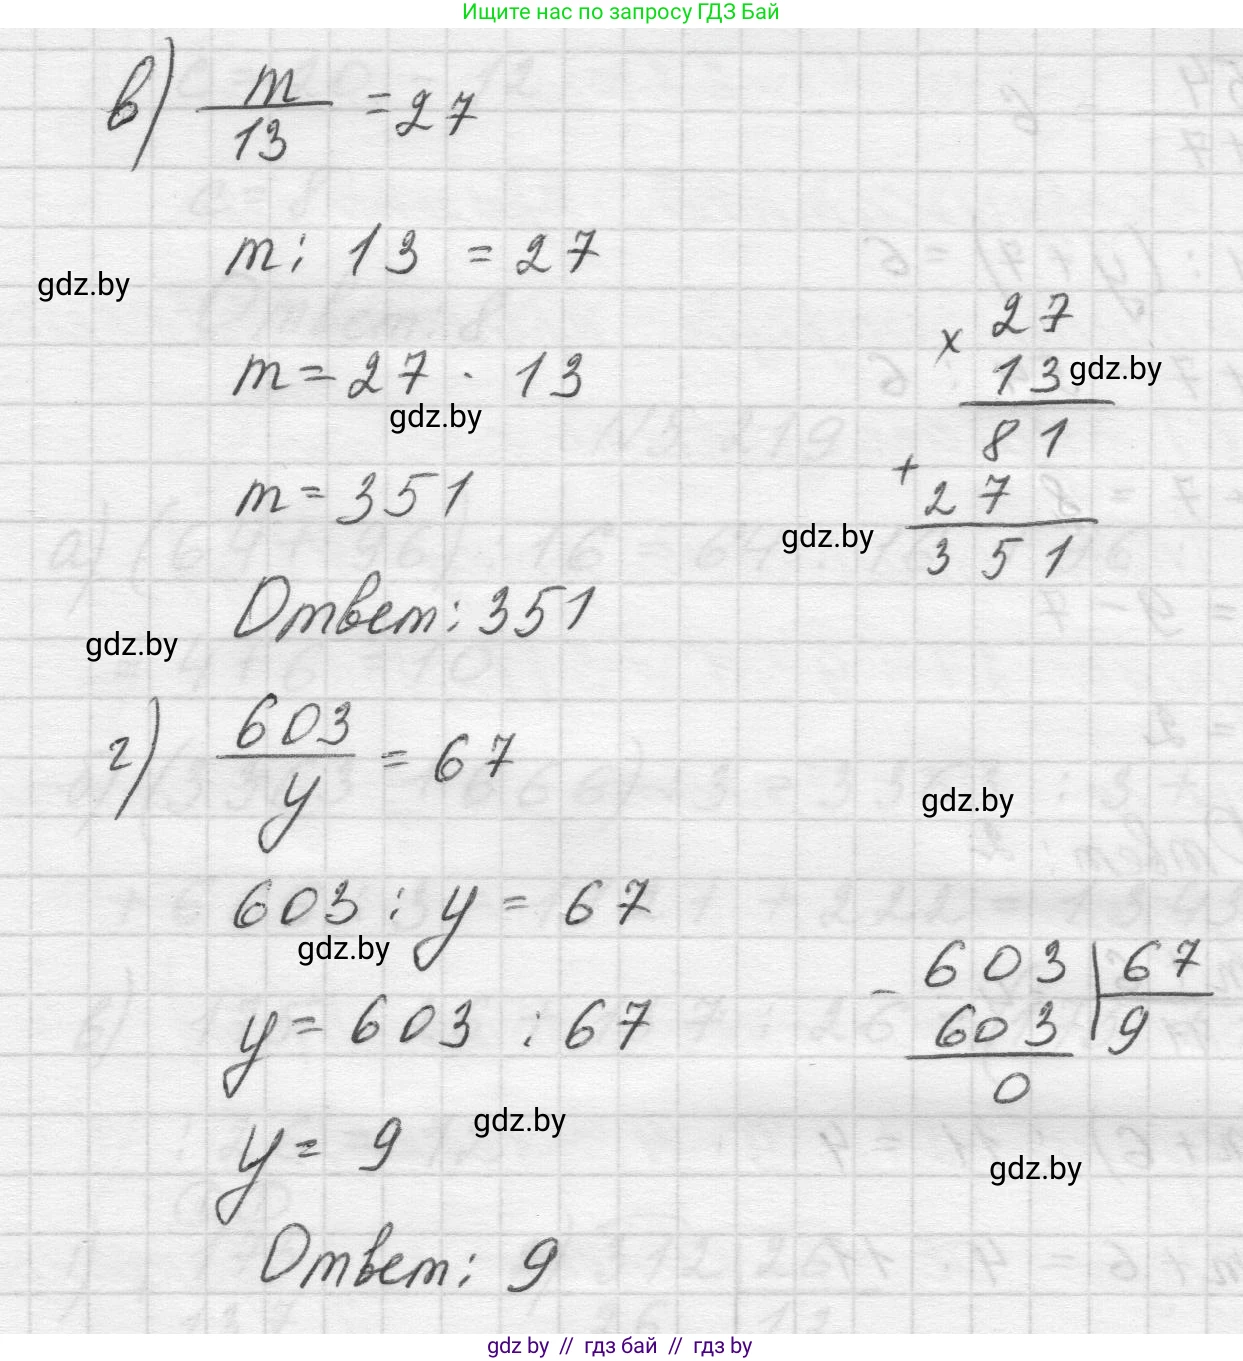 Ищите нас по запросу ГДЗ Бай
в) m/13 = 27
m : 13 = 27
gdz.by
m = 27 · 13
gdz.by
m = 351
Ответ: 351
gdz.by
× 27
13
gdz.by
81
+ 27
351
gdz.by
г) 603/y = 67
gdz.by
603 : y = 67
gdz.by
y = 603 : 67
y = 9
gdz.by
Ответ: 9
- 603 | 67
603 9
0
gdz.by
gdz by // гдз бай // гдз by